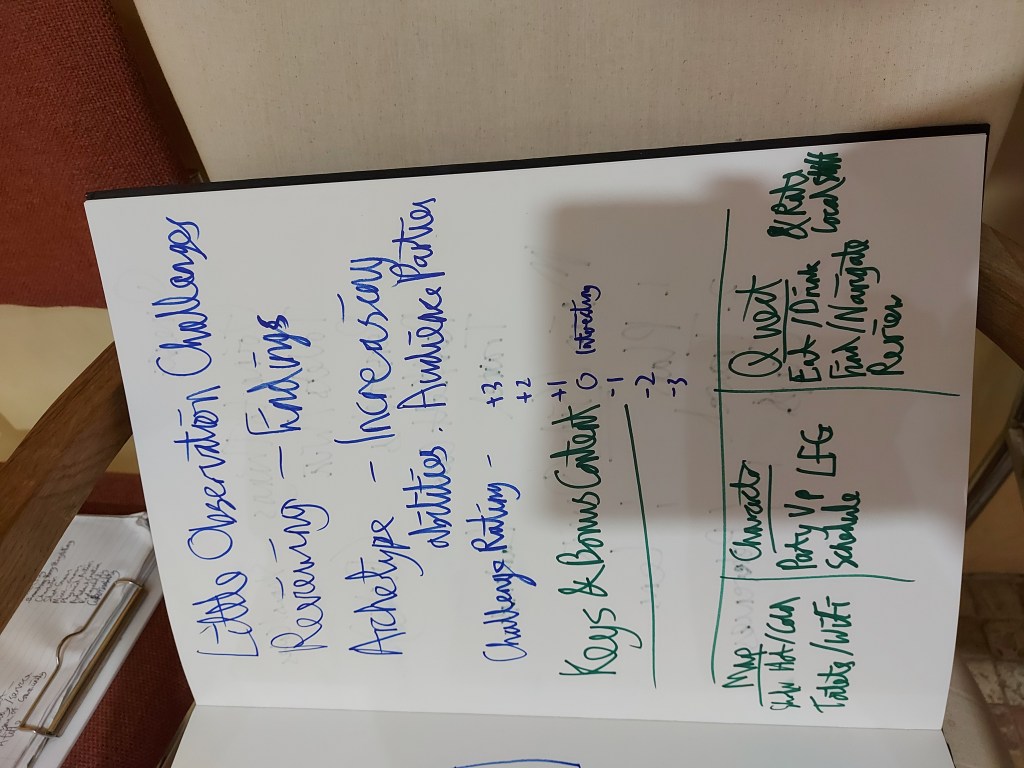 Little Observation Challenges
Reviewing - Findings
Archetype - Increasing
abilities. Audience Parties
Challenge Rating -
+3
+2
+1
0 Interesting
-1
-2
-3
Keys & Bonus Content
Map
Hot/Cold
Toilets/WiFi
Character
Party VP LFG
Schedule
Quest
Eat/Drink & Rate
Find/Navigate Local
Review